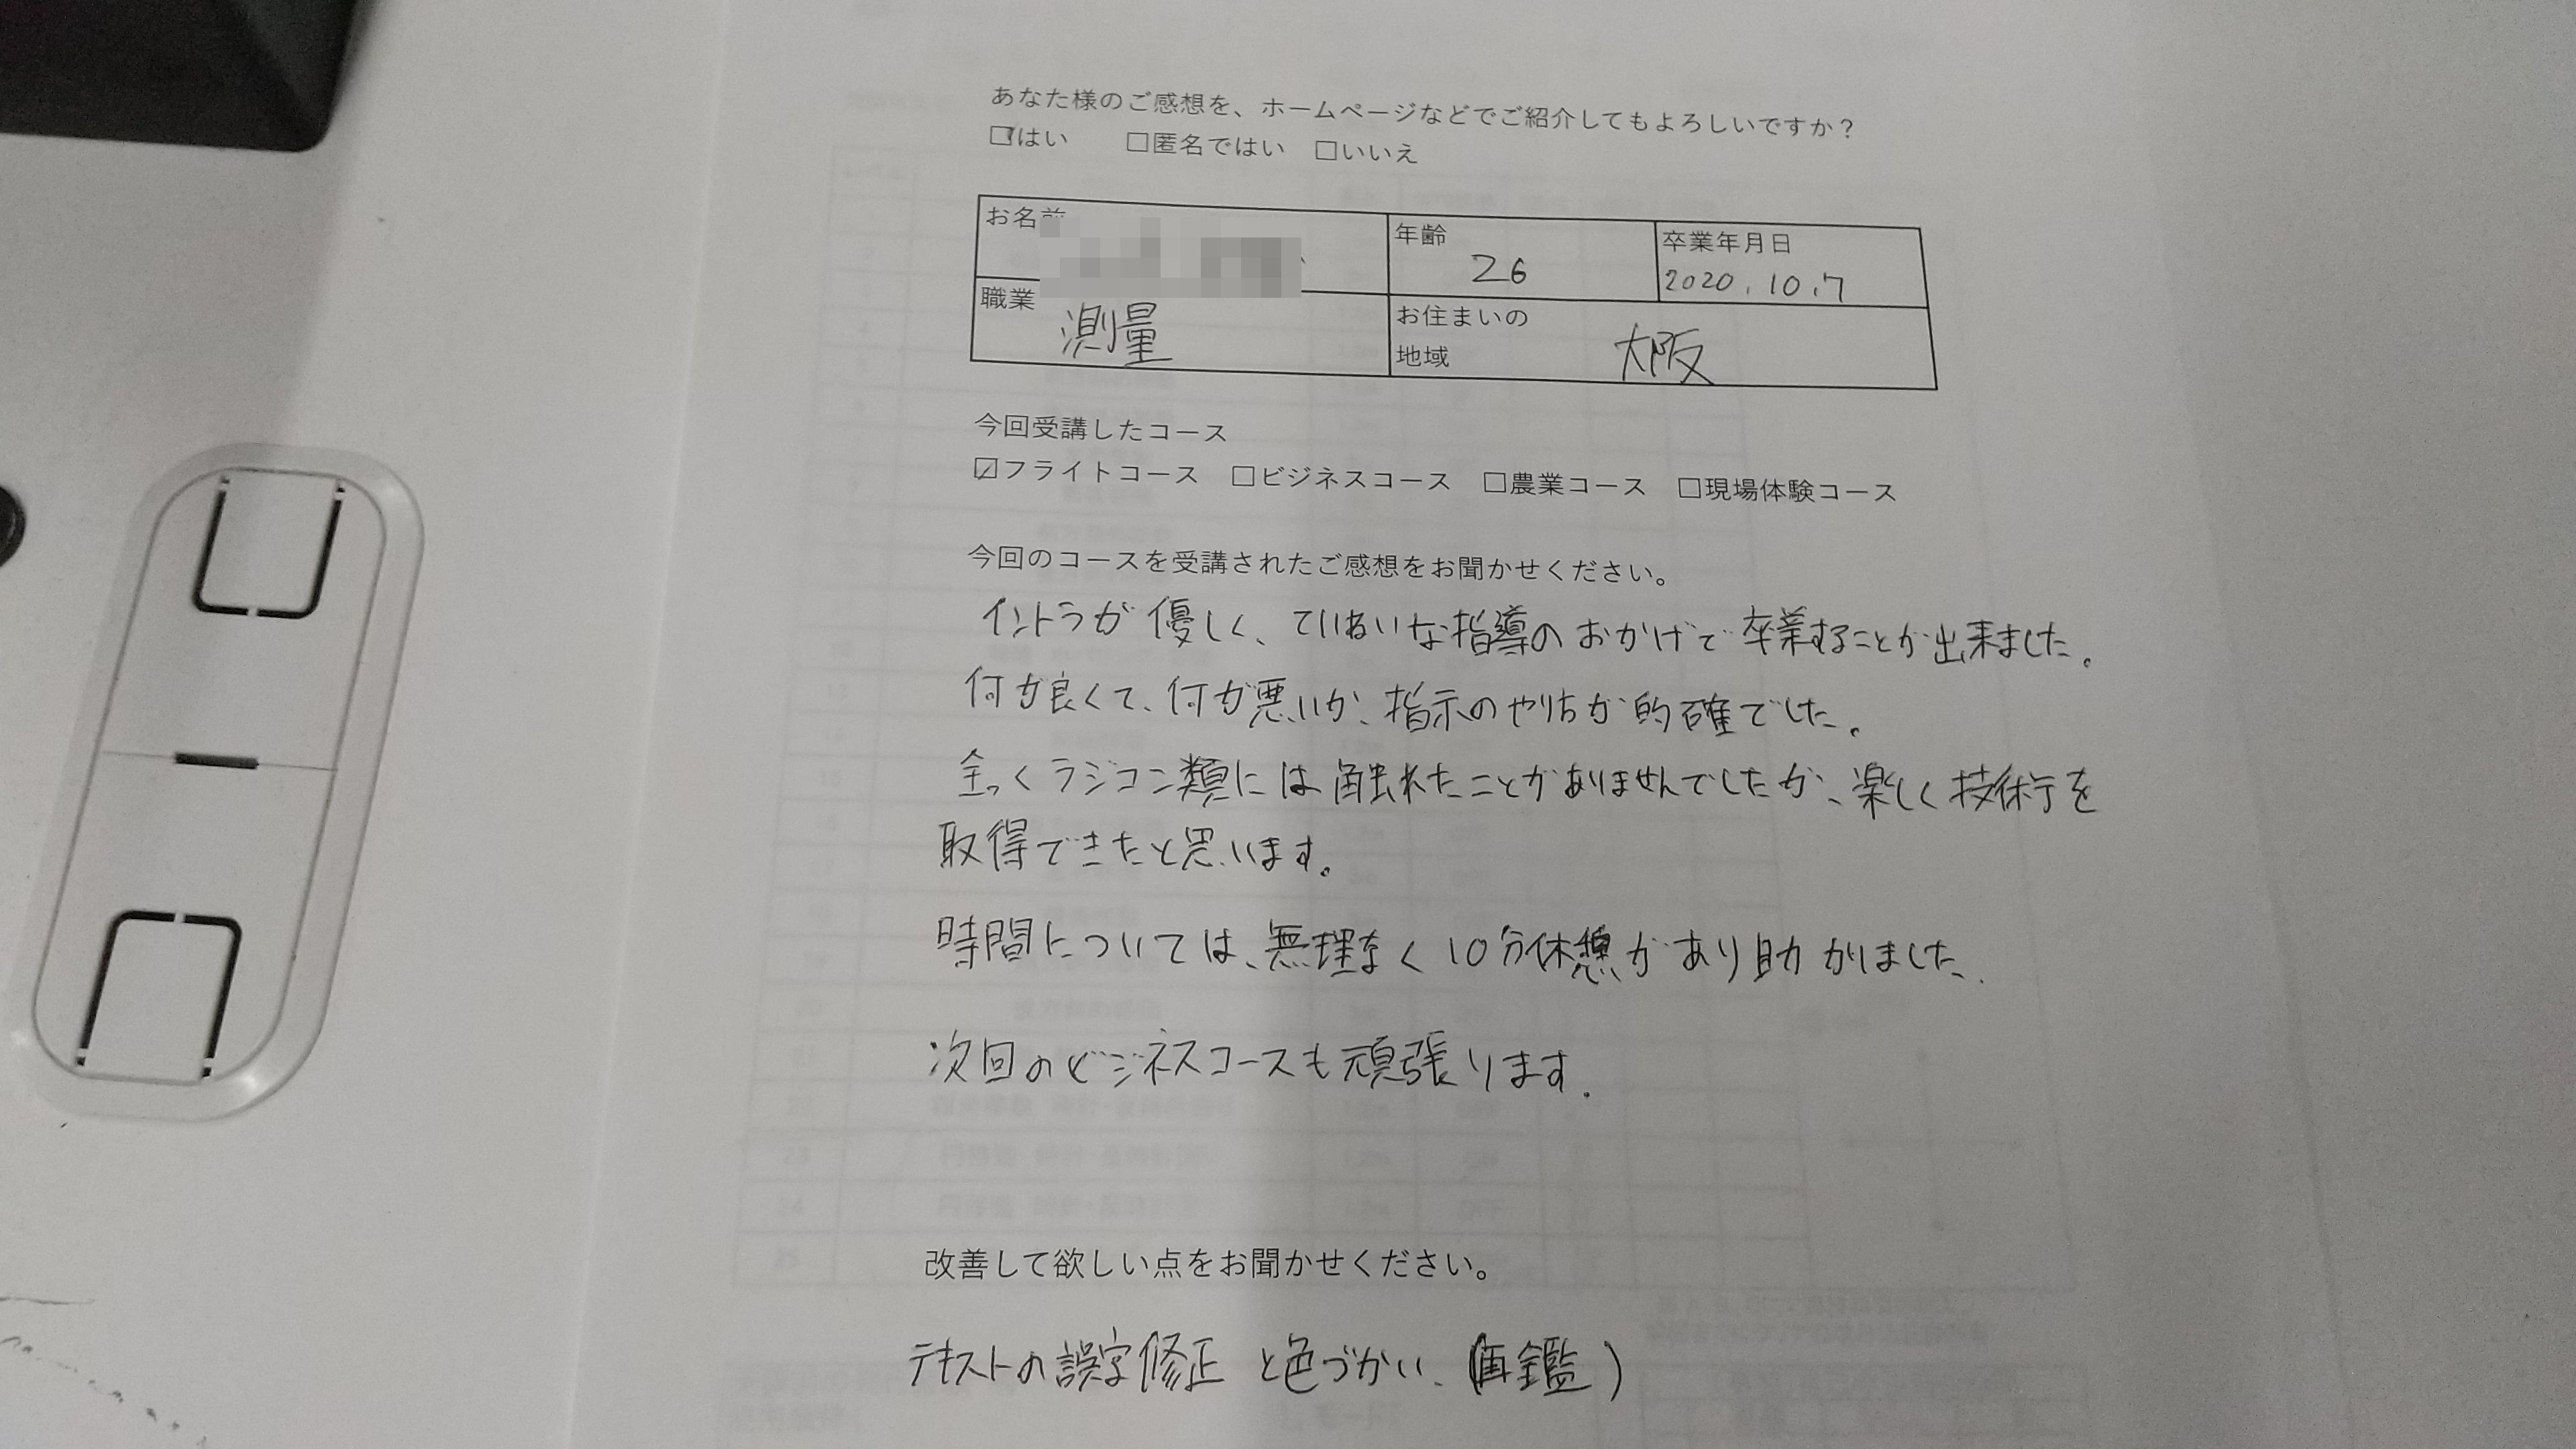 あなた様のご感想を、ホームページなどでご紹介してもよろしいですか？
☑はい　□匿名ではい　□いいえ
お名前
年齢
26
卒業年月日
2020.10.7
職業
測量
お住まいの
地域
大阪
今回受講したコース
☑フライトコース　□ビジネスコース　□農業コース　□現場体験コース
今回のコースを受講されたご感想をお聞かせください。
イントラが優しく、ていねいな指導のおかげで卒業することが出来ました。
何が良くて、何が悪いか、指示のやり方が的確でした。
全くラジコン類には触れたことがありませんでしたが、楽しく技術を
取得できたと思います。
時間については、無理なく10分休憩があり助かりました.
次回のビジネスコースも頑張ります.
改善して欲しい点をお聞かせください。
テキストの誤字修正 と色づかい.